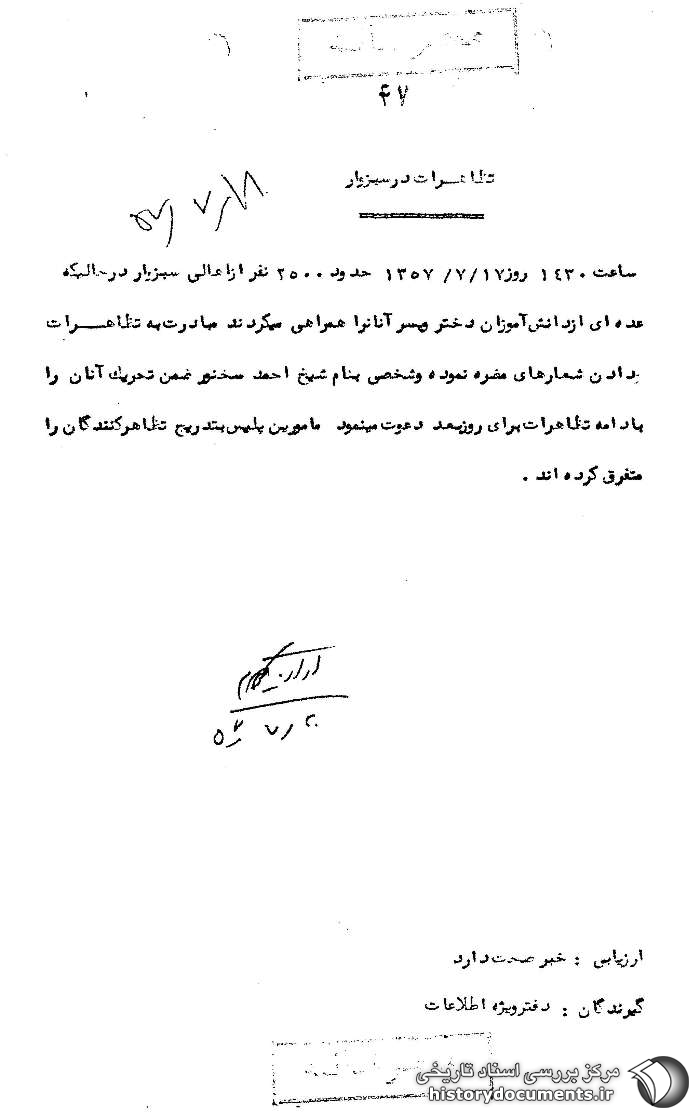 ۴۷
تظاهرات در سبزوار
۵۷/۷/۱۸
ساعت ۱۴۳۰ روز ۱۳۵۷/۷/۱۷ حدود ۲۵۰۰ نفر از اهالی سبزوار در حالیکه
عده ای از دانش آموزان دختر و پسر آنانرا همراهی میکردند مبادرت به تظاهرات
و دادن شعارهای مضره نموده و شخصی بنام شیخ احمد سخنور ضمن تحریک آنان را
بادامه تظاهرات برای روز بعد دعوت مینمود مامورین پلیس بتدریج تظاهرکنندگان را
متفرق کرده اند .
ارزیابی : خبر صحت دارد
گیرندگان : دفتر ویژه اطلاعات
مرکز بررسی اسناد تاریخی
historydocuments.ir